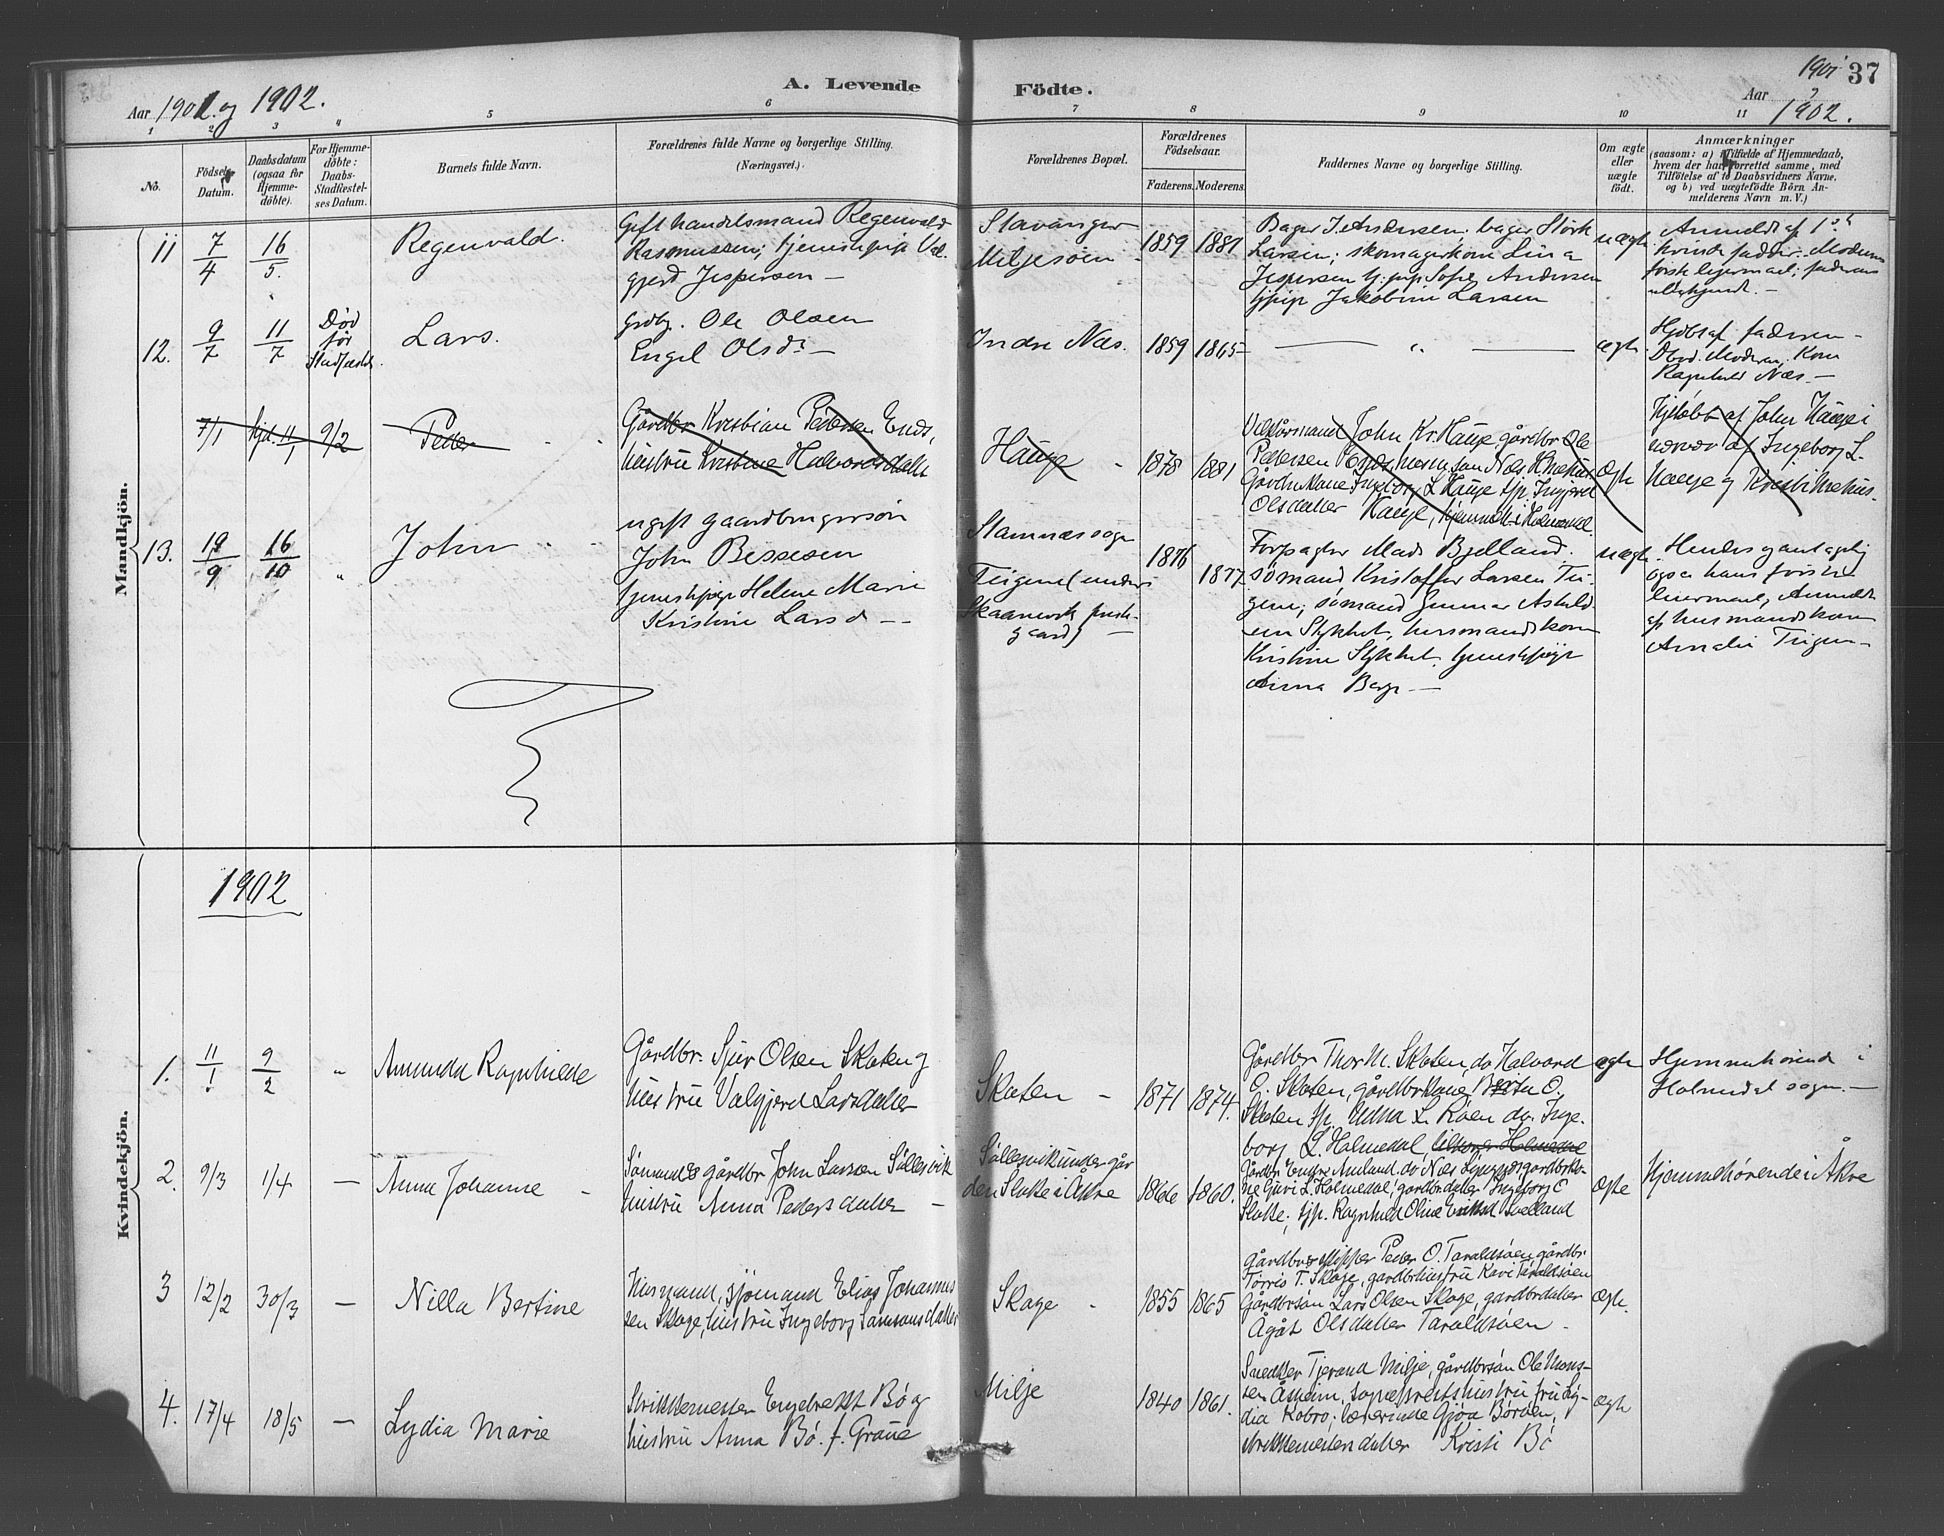 Aar 1901. og 1902.
A. Levende
Födte.
1901
37
Aar
1902.
1 2 3 „ 5 6 7 8 9 10 11
No.
Födsels-
Datum.
Daabsdatum
(ogsaa for
Hjemme-
döbte).
For Hjemme-
döbte:
Daabs-
Stadfæstel-
ses Datum.
Barnets fulde Navn.
Forældrenes fulde Navne og borgerlige Stilling.
(Næringsvei.)
Forældrenes Bopæl.
Forældrenes
Födselsaar.
Faderens.
Moderens.
Faddernes Navne og borgerlige Stilling.
Om ægte
eller
uægte
födt.
Anmærkninger
(saasom: a) i Tilfælde af Hjemmedaab,
hvem der har forrettet samme, med
Tilföielse af to Daabsvidners Navne,
og b) ved uægtefödte Börn An-
melderens Navn m. V.)
Mandkjön.
11
7/4
16/5.
Regenvald.
Gift handelsmand Regenvald
Rasmussen; tjenestepige Val-
gjerd Jespersen —
Stavanger
Miljesøen
1859
1881
Bager I. Andersen. bager Størk
Larsen; skomagerkone Lina
Jespersen tj: pig. Sofie Andersen
tjpig Jakobine Larsen
uægte
Anmeldt af 1ste
kvindl. fadder. Moderens
første leiermaal; faderens
12.
9/7
11/7
Død
før
Stadfæstels.
Lars.
Grdbr. Ole Olsen
Engel Olsdr —
Indre Næs.
1859
1865
— „ —
ægte
Hjdbt af faderen —
Død. Moderen, Kone
Ragnhild Næs. —
7/1
hjd. 11/1
9/2
Peder
Gårdbr Kristian Pedersen Enes,
hustru Kristine Halvordsdatter
Hauge
1878
1881
John Kr. Hauge, gårdbr Ole
Pedersen Enes,
Gårdbr.kone Ingeborg L. Hauge tjp. Ingjerd
Olsdatter Hauge, hjemmeh. i Holmedal
Ægte
Hjdøbt af John Hauge i
nærvær af Ingeborg L.
Hauge og
13.
19/9
16/10
„
John
ugift gaardbrugersøn
John Bessesen
tjenestepige Helene Marie
Kristine Larsd —
Stamnæs sogn
Teigene (under
Skaanevik præste-
gaard)
1876
1877
Forpagter Mads Bjelland.
sømand Kristoffer Larsen Tei-
gene; sømand Gunnar Askild-
sen Stykket, husmandskone
Kristine Stykket. tjenestepige
Anna Berge —
uægte.
Hendes og antagelig
ogsaa hans første
leiermaal, Anmeldt
af husmandskone
Amalie Teigen —
Kvindekjön.
1902
1.
11/1
9/2
„
Amunda Ragnhilde
Gårdbr. Sjur Olsen Skaten og
hustru Valgjerd Larsdatter
Skaten —
1871
1874.
Gårdbr Thor M. Skaten, do Halvord
O. Skaten, gårdbrkone Berta O.
Skaten tjp. Anna L. Røen do. Inge-
borg L. Holmedal,
ægte
Hjemmehørende i
Holmedal sogn. —
2.
9/3
1/4
—
Anna Johanne —
Sømand & gårdbr John Larsen Sállesvik
hustru Anna Pedersdatter —
Sállesvik under går
den Slotte i Åkre
1866
1860.
Gårdbr Endre Amland. do Næs
ne Guri L. Holmedal, gårdbrdatter Ingeborg E
Slotte; tjp. Ragnhild Olina
ægte
Hjemmehørende i Åkre
3
12/2
30/3
—
Nilla Bertine
Husmand, sjømand Elias Johannes
sen Skage, hustru Ingeborg Samsonsdatter
Skage —
1855
1865
Gårdbr & skipper Peder O. Taraldsøen gårdbr
Torris T. Skage, gardbrhustru Kari Taraldsøen
Gårdbrsøn Lars Olsen Skage, gardbrdatter
Ågåt Olsdatter Taraldsøen —
ægte.
4.
17/4
18/5
—
Lydia Marie
Strikkemester Engebrekt Bó og
hustru Anna Bó. f. Graue
Milje
1840
1861.
Snedker Tjerand Milje, gårdbrsøn Ole Mons-
sen Åsheim, sogneprestshustru fru Ly-
dia Kobro; lærerinde Gjøa Børden,
strikkemesterdatter Kristi Bó
ægte